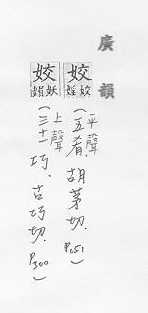 廣韻
姣 姣婬 (平聲 五肴, 胡茅切. P.151)
姣 妖媚 (上聲 三十一巧, 古巧切. P.300)